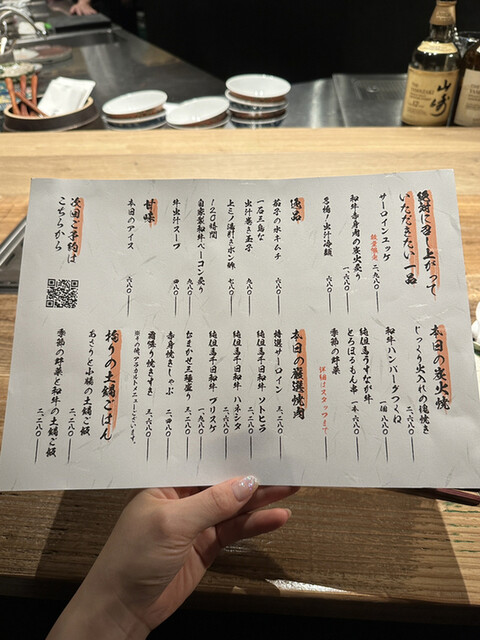 絶対に召し上がって
いただきたい一品
サーロインユッケ
数量限定 二、九八〇
和牛赤身肉の炭火炙り
一、六八〇
名物！出汁冷麺
六八〇
逸品
茄子の水キムチ
六八〇
一石三鳥な
出汁巻き玉子
九八〇
上ミノ湯引きポン酢
七八〇
120時間
自家製和牛ベーコン炙り
九八〇
牛出汁スープ
四八〇
甘味
本日のアイス
六八〇
次回ご予約は
こちらから
本日の炭火焼
じっくり火入れの塊焼き
二、六八〇
和牛ハンバーグつくね
一個 八八〇
純但馬うすなが牛
とろほろもん串
一本 六八〇
季節の野菜
詳細はスタッフまで
本日の厳選焼肉
特選サーロイン
三、二八〇
純但馬千日和牛 ソトヒラ
二、二八〇
純但馬千日和牛 ハネシタ
三、二八〇
純但馬千日和牛 ブリスケ
一、九八〇
なまかせ三種盛り
三、二八〇
赤身焼きしゃぶ
二、四八〇
霜降り焼きすき
三、六八〇
※その他、アラカルトメニューございます。
拘りの土鍋ごはん
あさりと小柱の土鍋ご飯
二、二八〇
季節の野菜と和牛の土鍋ご飯
二、二八〇
山崎
THE YAMAZAKI